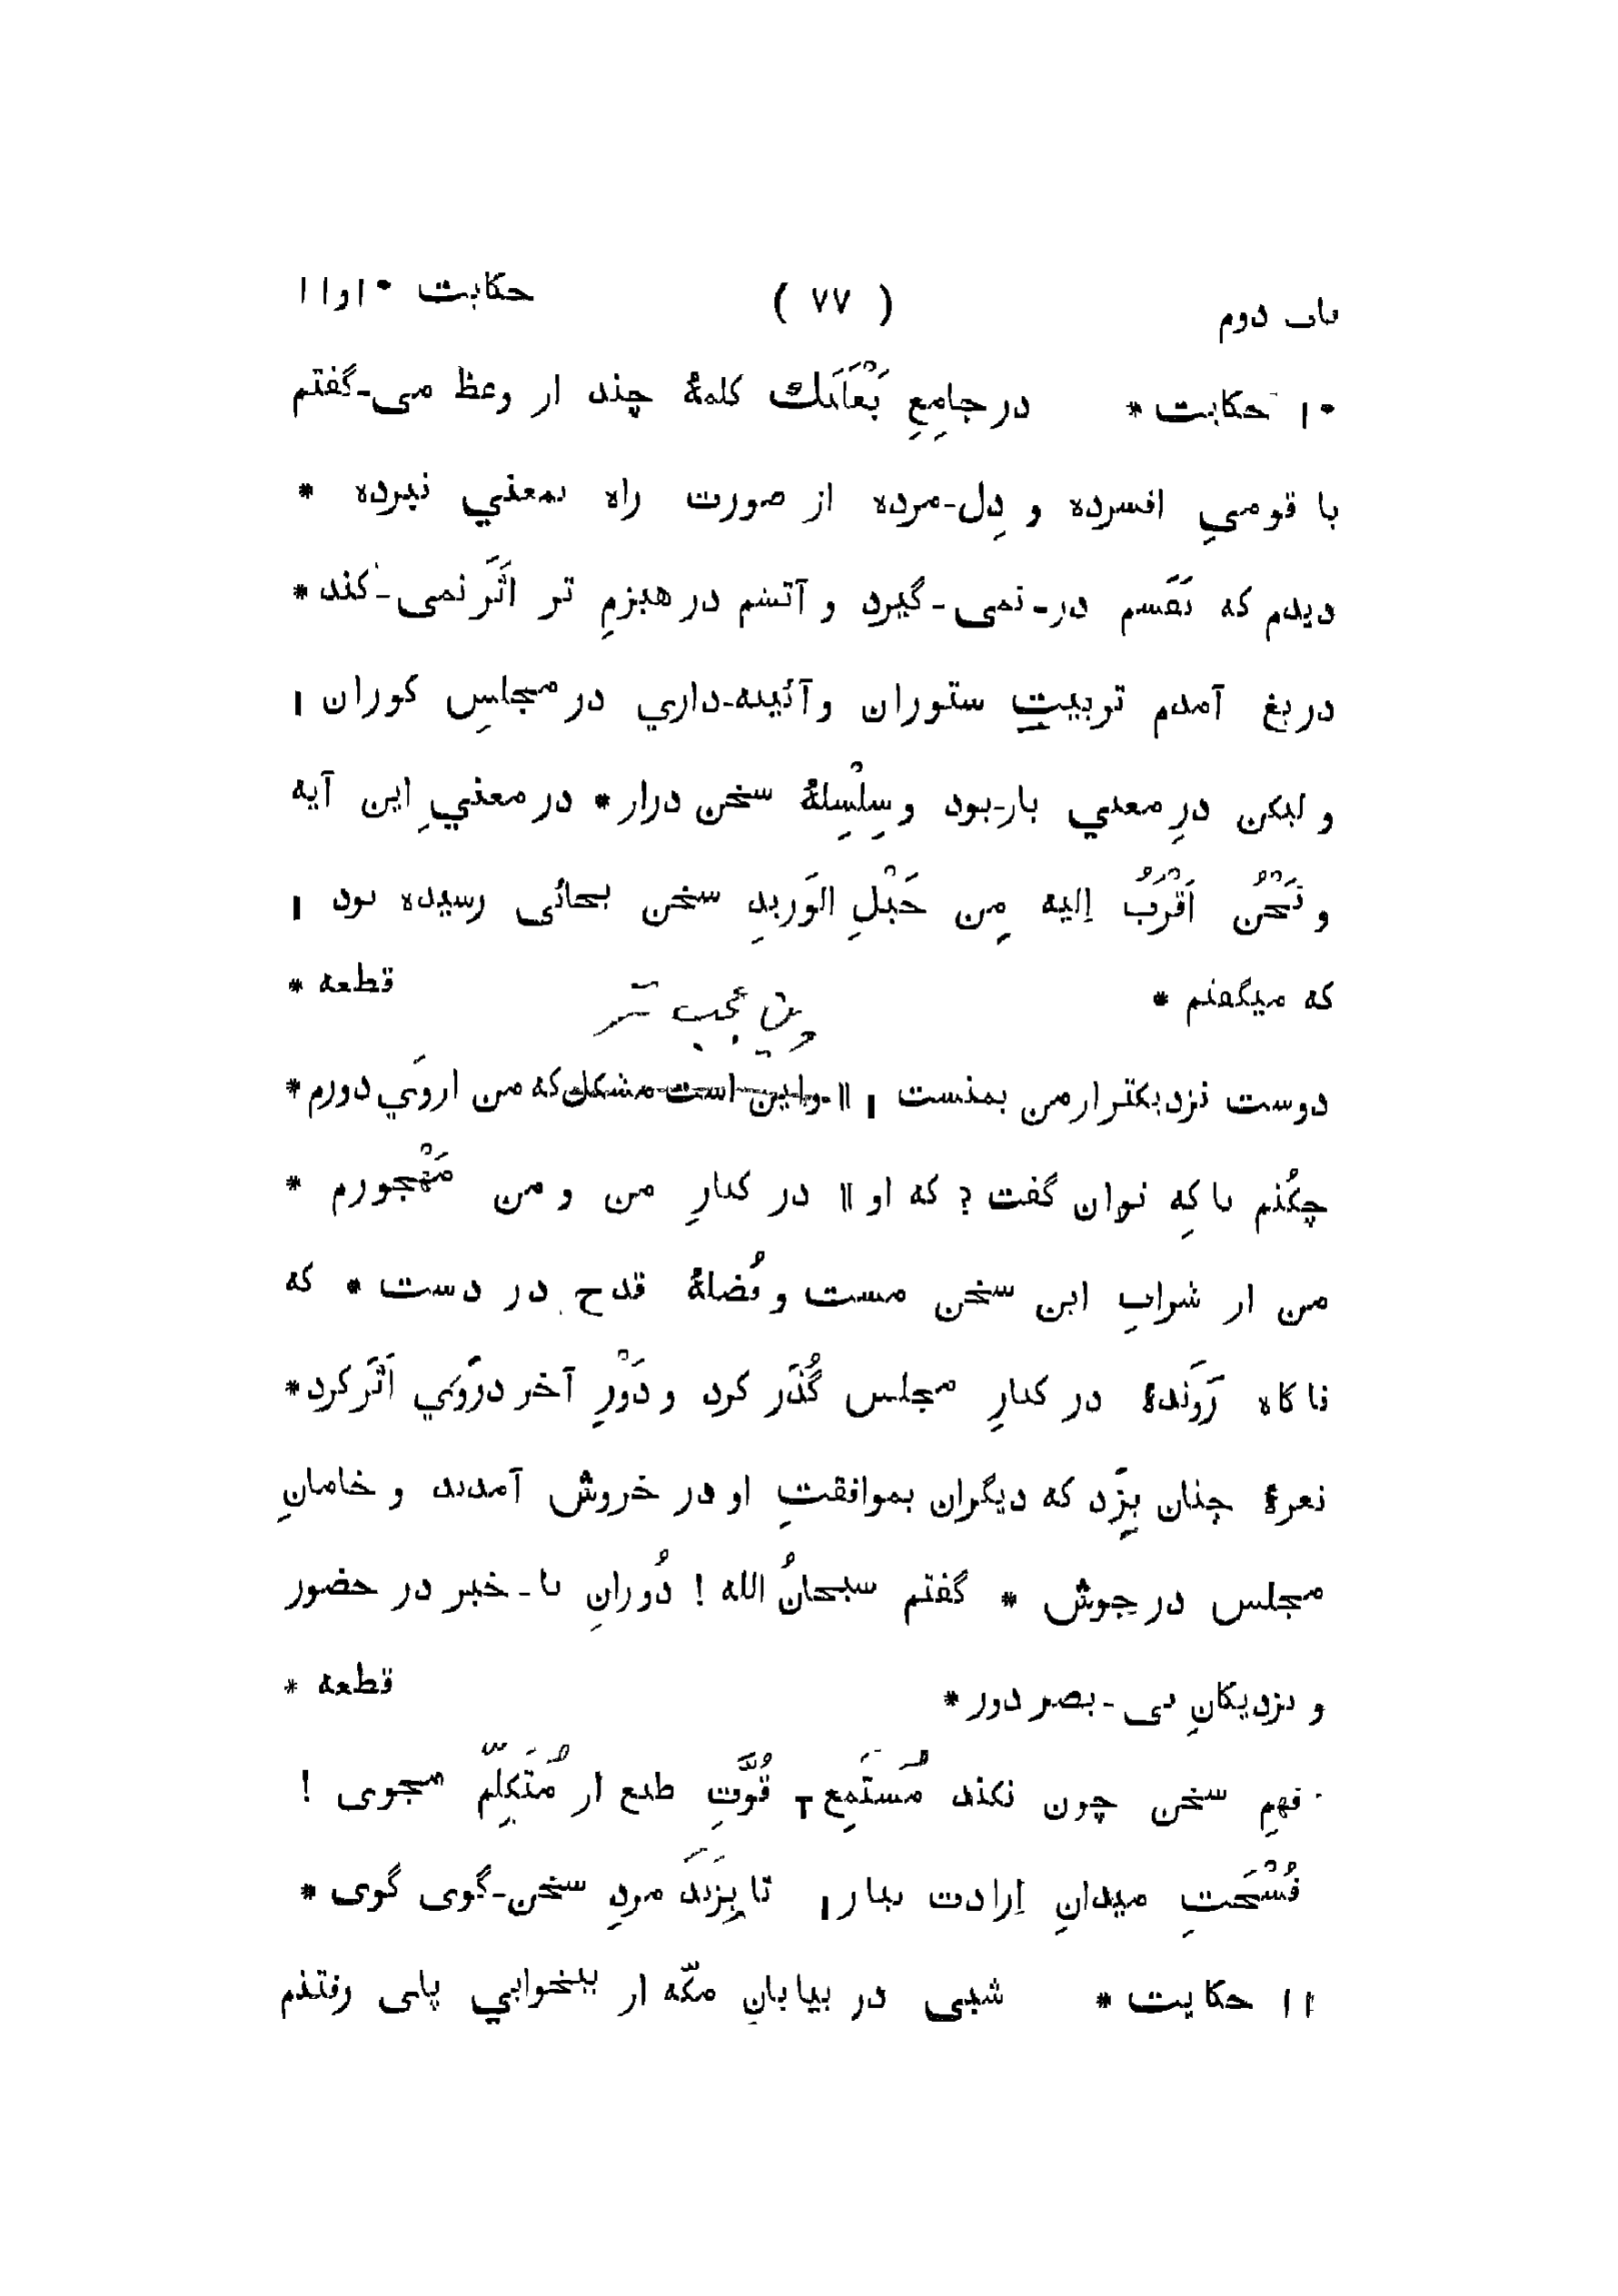 باب دوم ( ٧٧ ) حکایت ١٠ و ١١
١٠ حکایت * در جامِعِ بَعْلَبَك کلمهٔ چند از وعظ می-گفتم
با قومیِ افسرده و دِل-مرده از صورت راه بمعني نبرده *
دیدم که نَفَسم در-نمی-گیرد و آتشم در هیزمِ تر اثَر نمی-کند *
دریغ آمدم تربیتِ ستوران و آئینه-داري در مجلسِ کوران ا
و لیکن درِ معني باز-بود و سِلْسِلهٔ سخن دراز * در معنيِ این آیه
و نَحْنُ اَقْرَبُ اِلیه مِن حَبْلِ الوَریدِ سخن بجائی رسیده بود ا
که میگفتم * وین عجب تر قطعه *
دوست نزدیکتر از من بمنست ا ॥ و این است مشکل که من از وَي دورم *
چکُنم با کِه توان گفت ? که او ॥ در کنارِ من و من مَهْجورم *
من از شرابِ این سخن مست و فُضلهٔ قدح در دست * که
ناگاه رَوَندهٔ در کنارِ مجلس گُذَر کرد و دَوْرِ آخر دروَي اَثَر کرد *
نعرهٔ چنان بِزَد که دیگران بموافقتِ او در خروش آمدند و خامانِ
مجلس در جوش * گفتم سبحانُ الله ! دُورانِ با-خبر در حضور
و نزدیکانِ بی-بصر دور * قطعه *
فهمِ سخن چون نکند مُستَمِع ـ قُوَّتِ طبع از مُتَکِلّم مجوی !
فُسْحَتِ میدانِ اِرادت بیار ا تا بِزَنَد مردِ سخن-گوی گوی *
١١ حکایت * شبی در بیابانِ مکّه از بیخوابي پای رفتنم